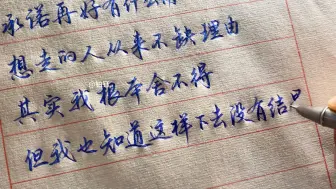 承诺再好有什么用
想走的人从来不缺理由
其实我根本舍不得
但我也知道这样下去没有结